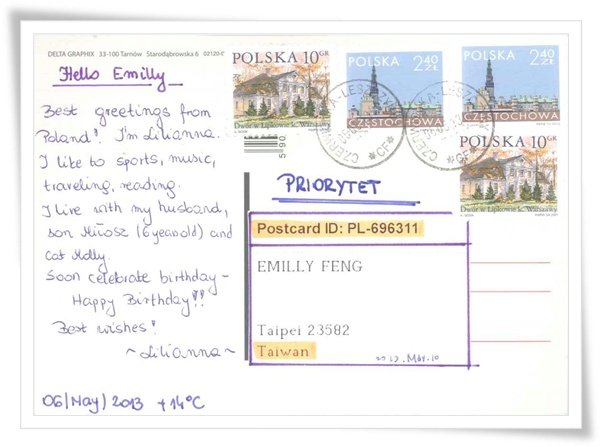 DELTA GRAPHIX 33-100 Tarnów Starodąbrowska 6
Hello Emilly
Best greetings from
Poland! I'm Lilianna.
I like to sports, music,
traveling, reading.
I live with my husband,
son Miłosz (6yearold) and
Cat Molly.
Soon celebrate birthday -
Happy Birthday!!
Best wishes!
~Lilianna~
06/May/2013 +14°C
POLSKA 10GR
Dwór w Lipkowie k. Warszawy
POLSKA 2,40 ZŁ
CZĘSTOCHOWA
POLSKA 2,40 ZŁ
CZĘSTOCHOWA
POLSKA 10GR
Dwór w Lipkowie k. Warszawy
PRIORYTET
Postcard ID: PL-696311
EMILLY FENG
Taipei 23582
Taiwan